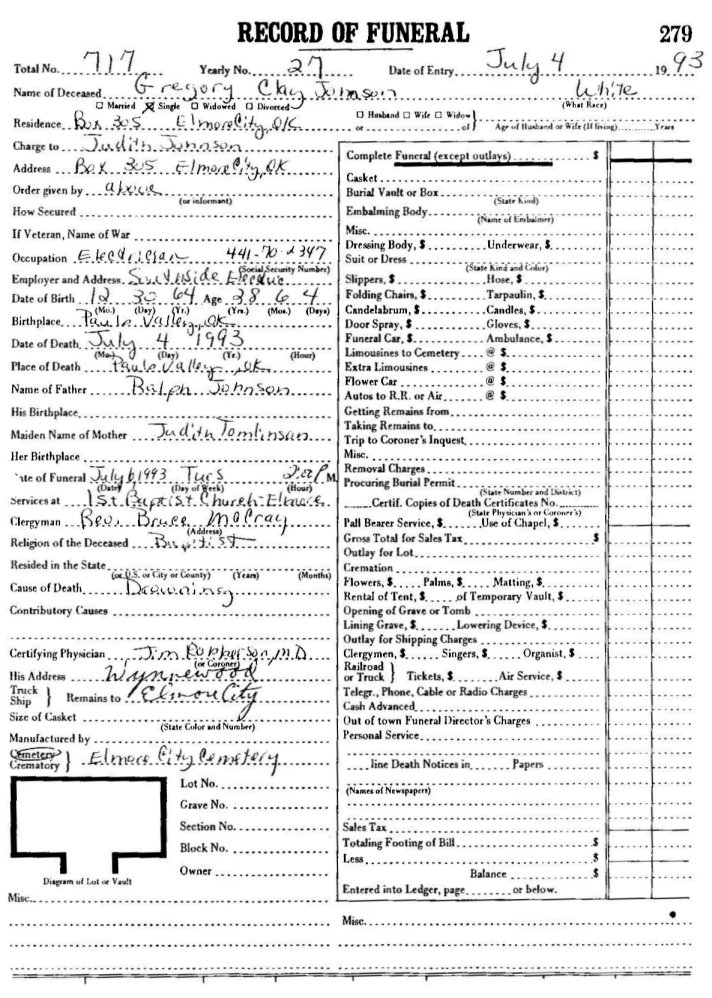 RECORD OF FUNERAL 279
Total No. 717 Yearly No. 27 Date of Entry July 4 1993
Name of Deceased Gregory Clay Johnson White
☐ Married ☒ Single ☐ Widowed ☐ Divorced (What Race)
Residence Box 305 Elmore City, OK
☐ Husband ☐ Wife ☐ Widow
or of Age of Husband or Wife (If living) Years
Charge to Judith Johnson
Address Box 305 Elmore City, OK
Order given by above
(or informant)
How Secured
If Veteran, Name of War
Occupation Electrician 441-70-2347
(Social Security Number)
Employer and Address Southside Electric
Date of Birth 12 30 64 Age 28 6 4
(Mo.) (Day) (Yr.) (Yrs.) (Mos.) (Days)
Birthplace Pauls Valley, OK
Date of Death July 4 1993
(Mo.) (Day) (Yr.) (Hour)
Place of Death Pauls Valley, OK
Name of Father Ralph Johnson
His Birthplace
Maiden Name of Mother Judith Tomlinson
Her Birthplace
Date of Funeral July 6 1993 Tues 2:00 P M.
(Date) (Day of Week) (Hour)
Services at 1st Baptist Church-Elmore
Clergyman Rev. Bruce McCray
(Address)
Religion of the Deceased Baptist
Resided in the State
(or U.S. or City or County) (Years) (Months)
Cause of Death Drowning
Contributory Causes
Certifying Physician Jim M.D
(or Coroner)
His Address Wynnewood
Truck
Ship } Remains to Elmore City
Size of Casket
(State Color and Number)
Manufactured by
Cemetery
Crematory } Elmore City Cemetery
Lot No.
Grave No.
Section No.
Block No.
Owner
Diagram of Lot or Vault
Misc.
Complete Funeral (except outlays) $
Casket
Burial Vault or Box
(State Kind)
Embalming Body
(Name of Embalmer)
Misc.
Dressing Body, $ Underwear, $
Suit or Dress
(State Kind and Color)
Slippers, $ Hose, $
Folding Chairs, $ Tarpaulin, $
Candelabrum, $ Candles, $
Door Spray, $ Gloves, $
Funeral Car, $ Ambulance, $
Limousines to Cemetery @ $
Extra Limousines @ $
Flower Car @ $
Autos to R.R. or Air @ $
Getting Remains from
Taking Remains to
Trip to Coroner's Inquest
Misc.
Removal Charges
Procuring Burial Permit
(State Number and District)
Certif. Copies of Death Certificates No.
(State Physician's or Coroner's)
Pall Bearer Service, $ Use of Chapel, $
Gross Total for Sales Tax $
Outlay for Lot
Cremation
Flowers, $ Palms, $ Matting, $
Rental of Tent, $ of Temporary Vault, $
Opening of Grave or Tomb
Lining Grave, $ Lowering Device, $
Outlay for Shipping Charges
Clergymen, $ Singers, $ Organist, $
Railroad
or Truck } Tickets, $ Air Service, $
Telegr., Phone, Cable or Radio Charges
Cash Advanced
Out of town Funeral Director's Charges
Personal Service
line Death Notices in Papers
(Names of Newspapers)
Sales Tax
Totaling Footing of Bill $
Less $
Balance $
Entered into Ledger, page or below.
Misc.